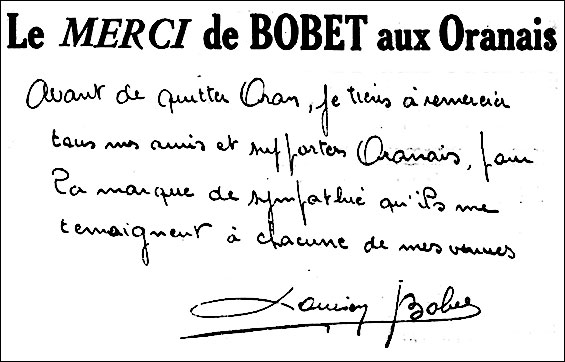 Le MERCI de BOBET aux Oranais
Avant de quitter Oran, je tiens à remercier
tous mes amis et supporters Oranais, pour
la marque de sympathie qu'ils me
temoignent à chacune de mes venues
Louison Bobet